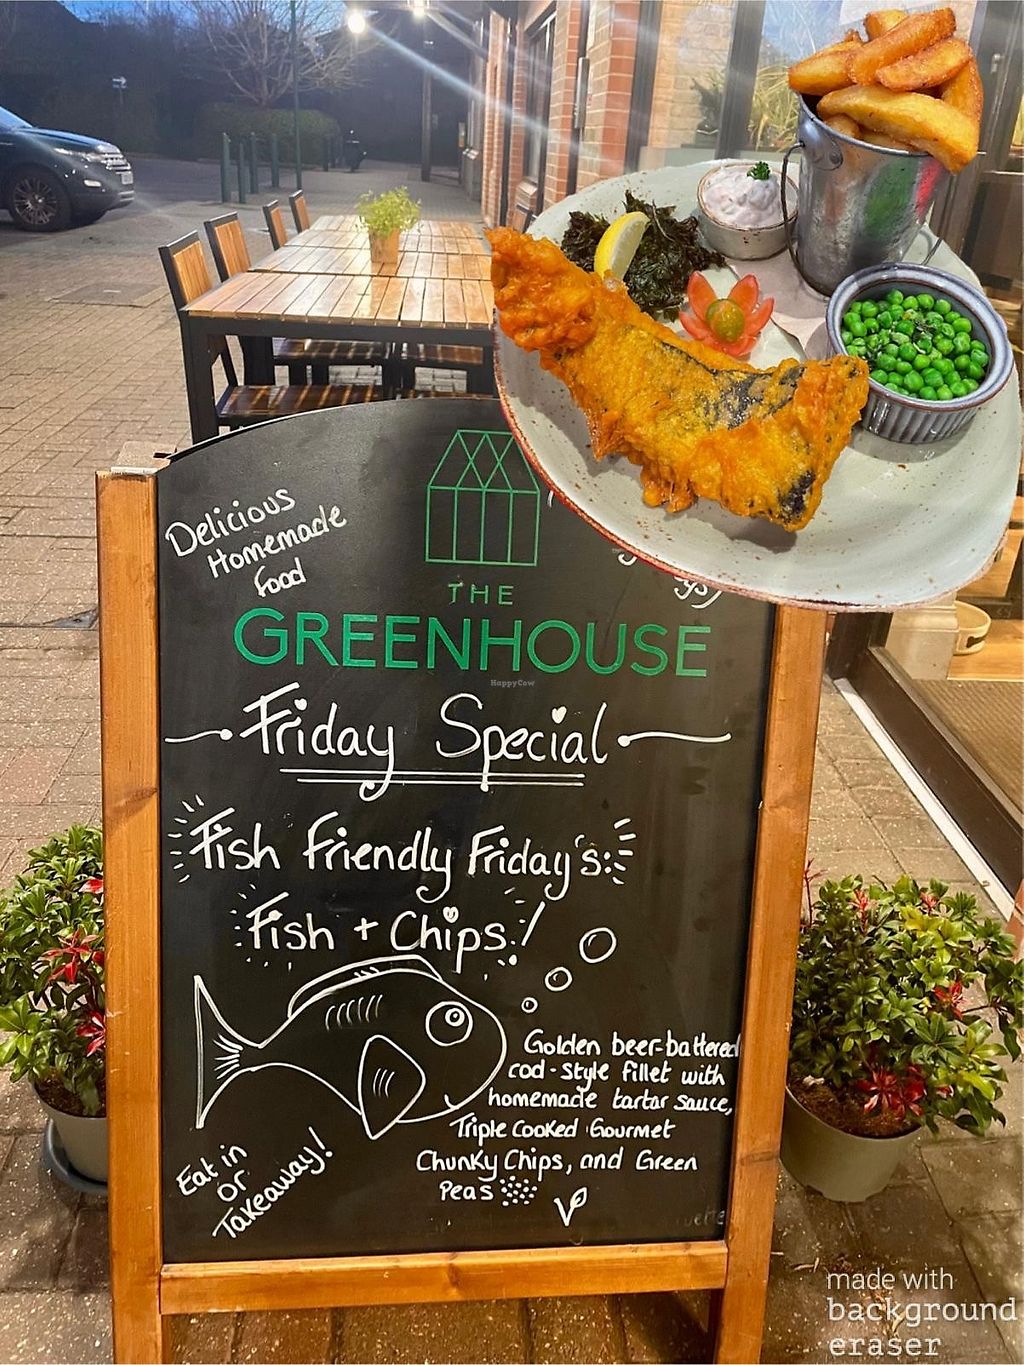 Delicious
Homemade
Food
THE
GREENHOUSE
HappyCow
Friday Special
Fish Friendly Friday's:
Fish + Chips!
Golden beer-battered
cod-style fillet with
homemade tartar sauce,
Triple Cooked Gourmet
Chunky Chips, and Green
Peas
Eat in
or
Takeaway!
made with
background
eraser